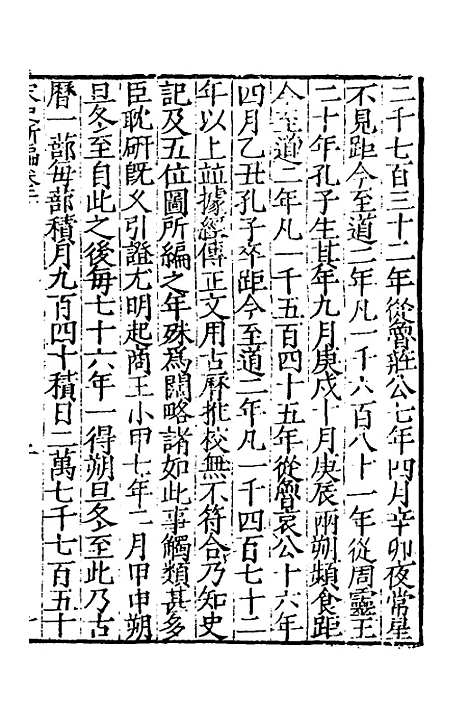 二千七百三十二年從魯莊公七年四月辛卯夜常星
不見距今至道二年凡一千六百八十一年從周靈王
二十年孔子生其年九月庚戌十月庚辰兩朔頻食距
今至道二年凡一千五百四十五年從魯哀公十六年
四月乙丑孔子卒距今至道二年凡一千四百七十二
年以上並據經傳正文用古曆推校無不符合乃知史
記及五位圖所編之年殊為闊略諸如此事觸類甚多
臣耽研既久引證尤明起商王小甲七年二月甲申朔
旦冬至自此之後每七十六年一得朔旦冬至此乃古
曆一蔀每蔀積月九百四十積日二萬七千七百五十
宋史新編卷三